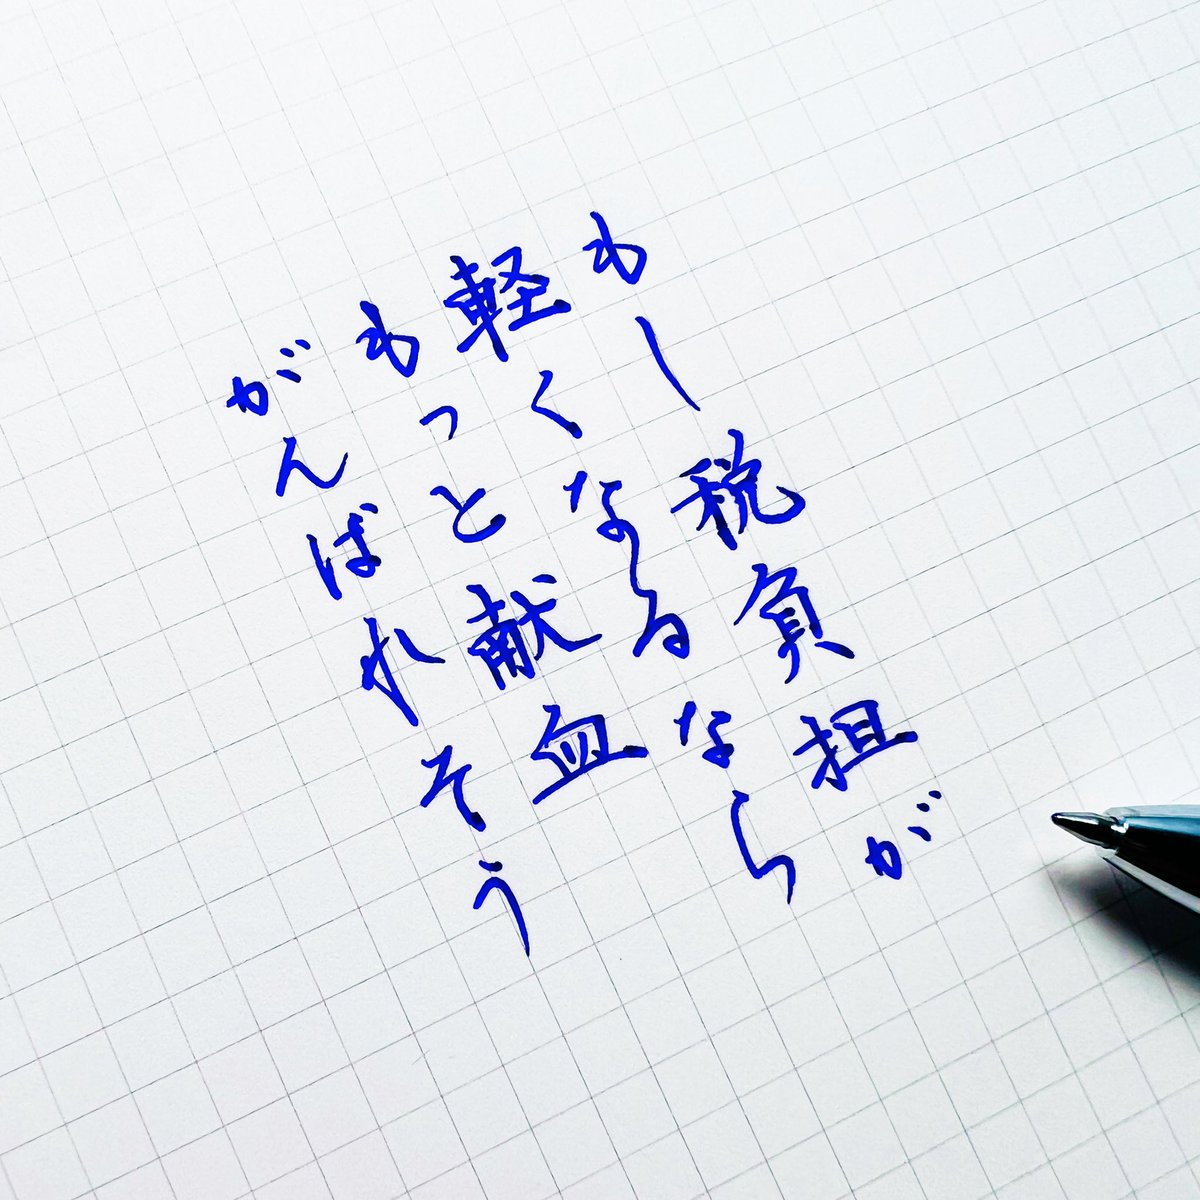 もし税負担が
軽くなるなら
もっと献血
がんばれそう